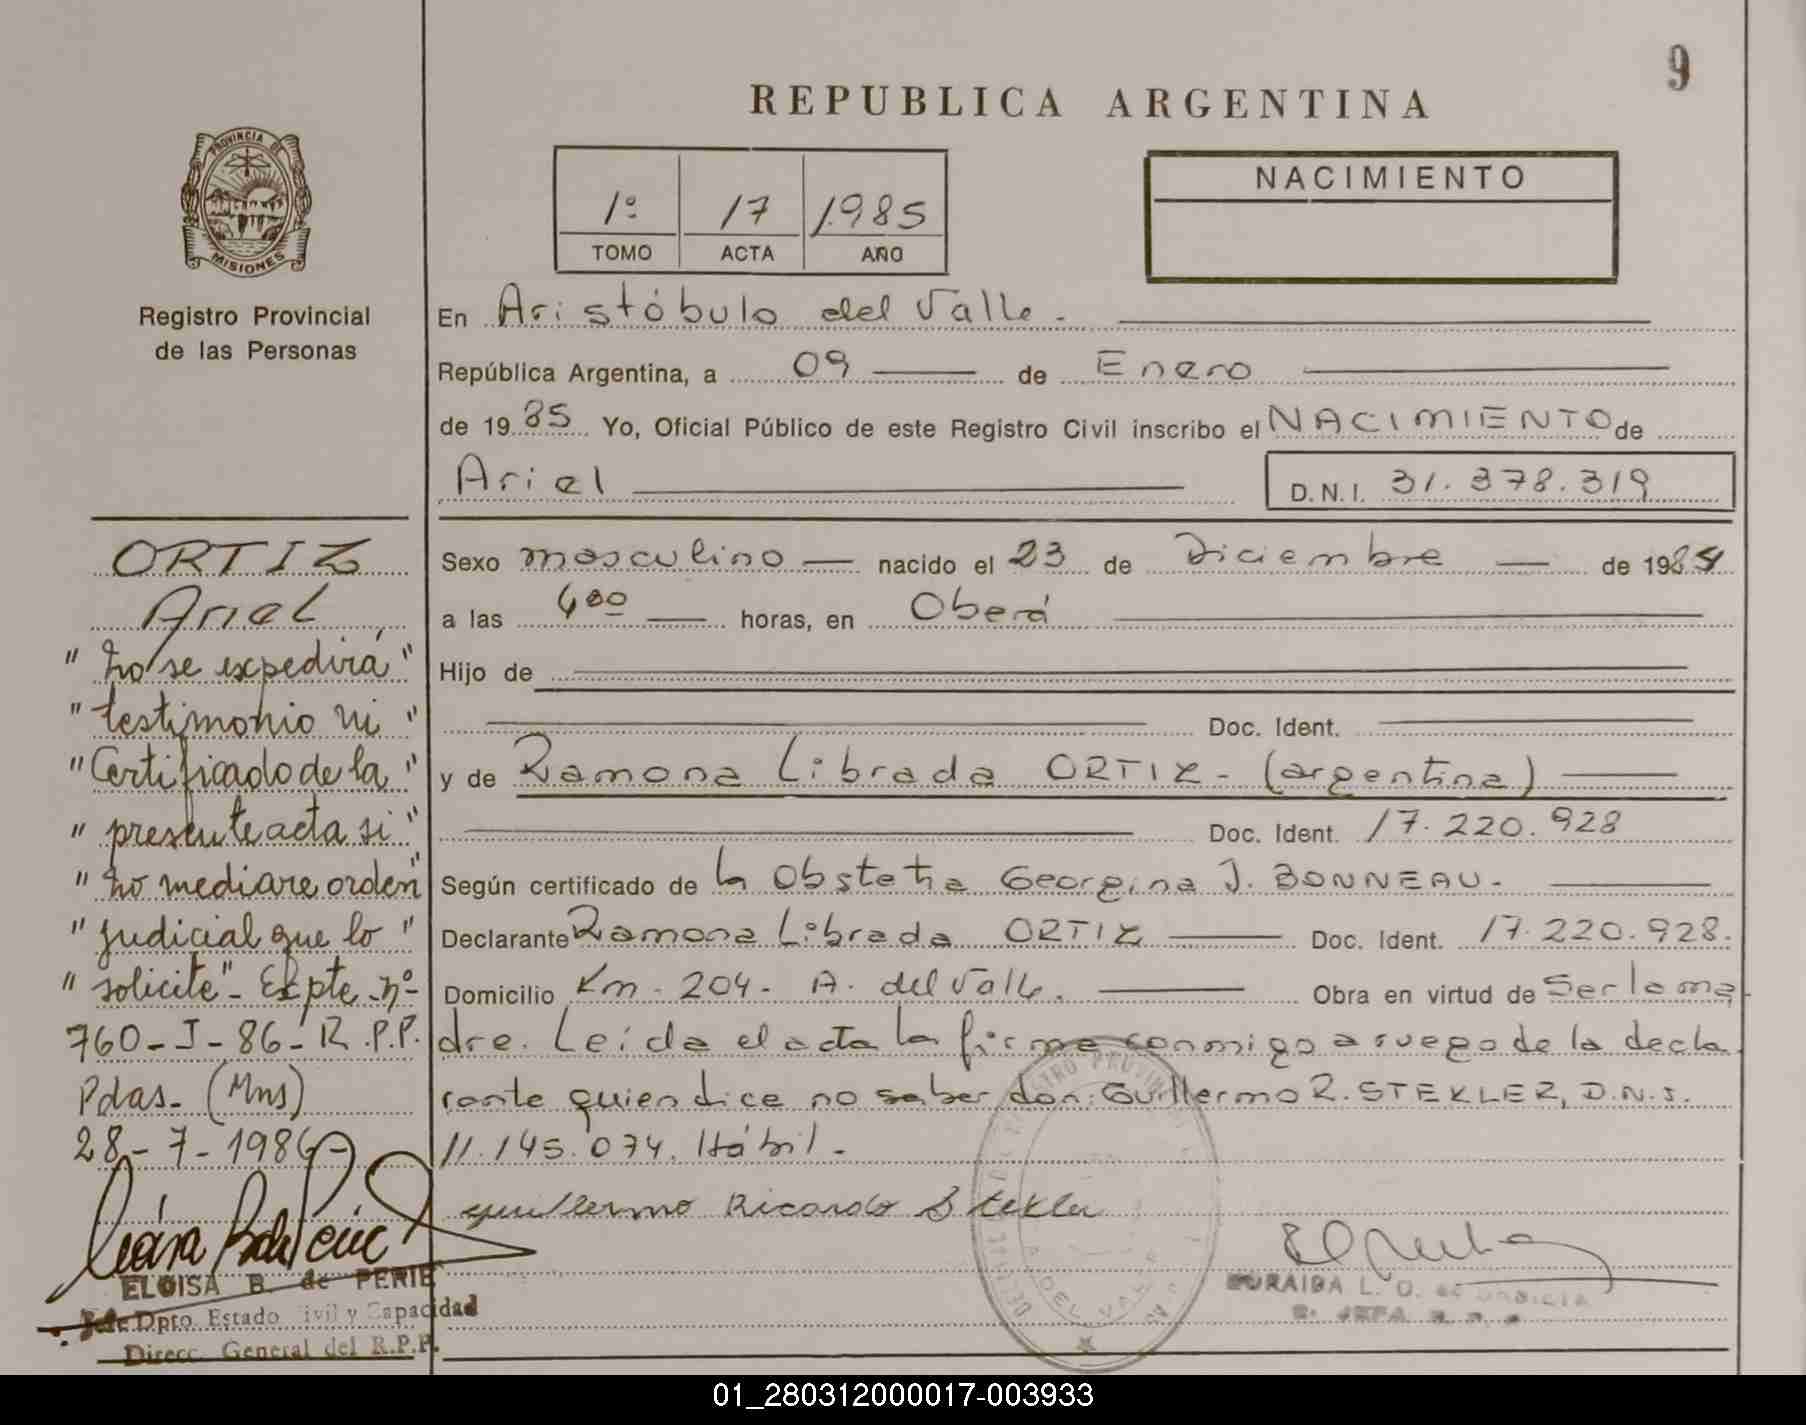 9
REPUBLICA ARGENTINA
PROVINCIA DE
MISIONES
Registro Provincial
de las Personas
1º 17 1985
TOMO ACTA AÑO
NACIMIENTO
En Aristóbulo del Valle.
República Argentina, a 09 de Enero
de 1985 Yo, Oficial Público de este Registro Civil inscribo el NACIMIENTO de
Ariel D.N.I. 31.378.319
Sexo masculino nacido el 23 de Diciembre de 1984
a las 4 00 horas, en Oberá
Hijo de
Doc. Ident.
y de Ramona Librada ORTIZ - (argentina)
Doc. Ident. 17.220.928
Según certificado de la Obstetra Georgina J. BONNEAU.
Declarante Ramona Librada ORTIZ Doc. Ident. 17.220.928.
Domicilio Km. 204 - A. del Valle. Obra en virtud de Ser la ma
dre. Leída el acta la firma conmigo a ruego de la decla
rante quien dice no saber, don: Guillermo R. STEKLER, D.N.I.
11.145.074. Hábil.-
Guillermo Ricardo Stekler
ORTIZ
Ariel
"no se expedirá"
"testimonio ni"
"Certificado de la"
"presente acta si"
"no mediare orden"
"judicial que lo"
"solicite"- Expte. nº
760-J-86-R.P.P.
Pdas. (Mns)
28-7-1986-
ELOISA B. de PERIE
Jefe Dpto. Estado Civil y Capacidad
Direcc. General del R.P.P.
ZURAIDA L. O. de
01_280312000017-003933